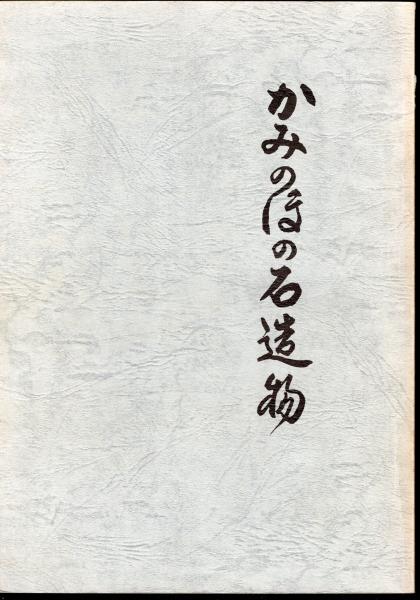 かみのほの石造物